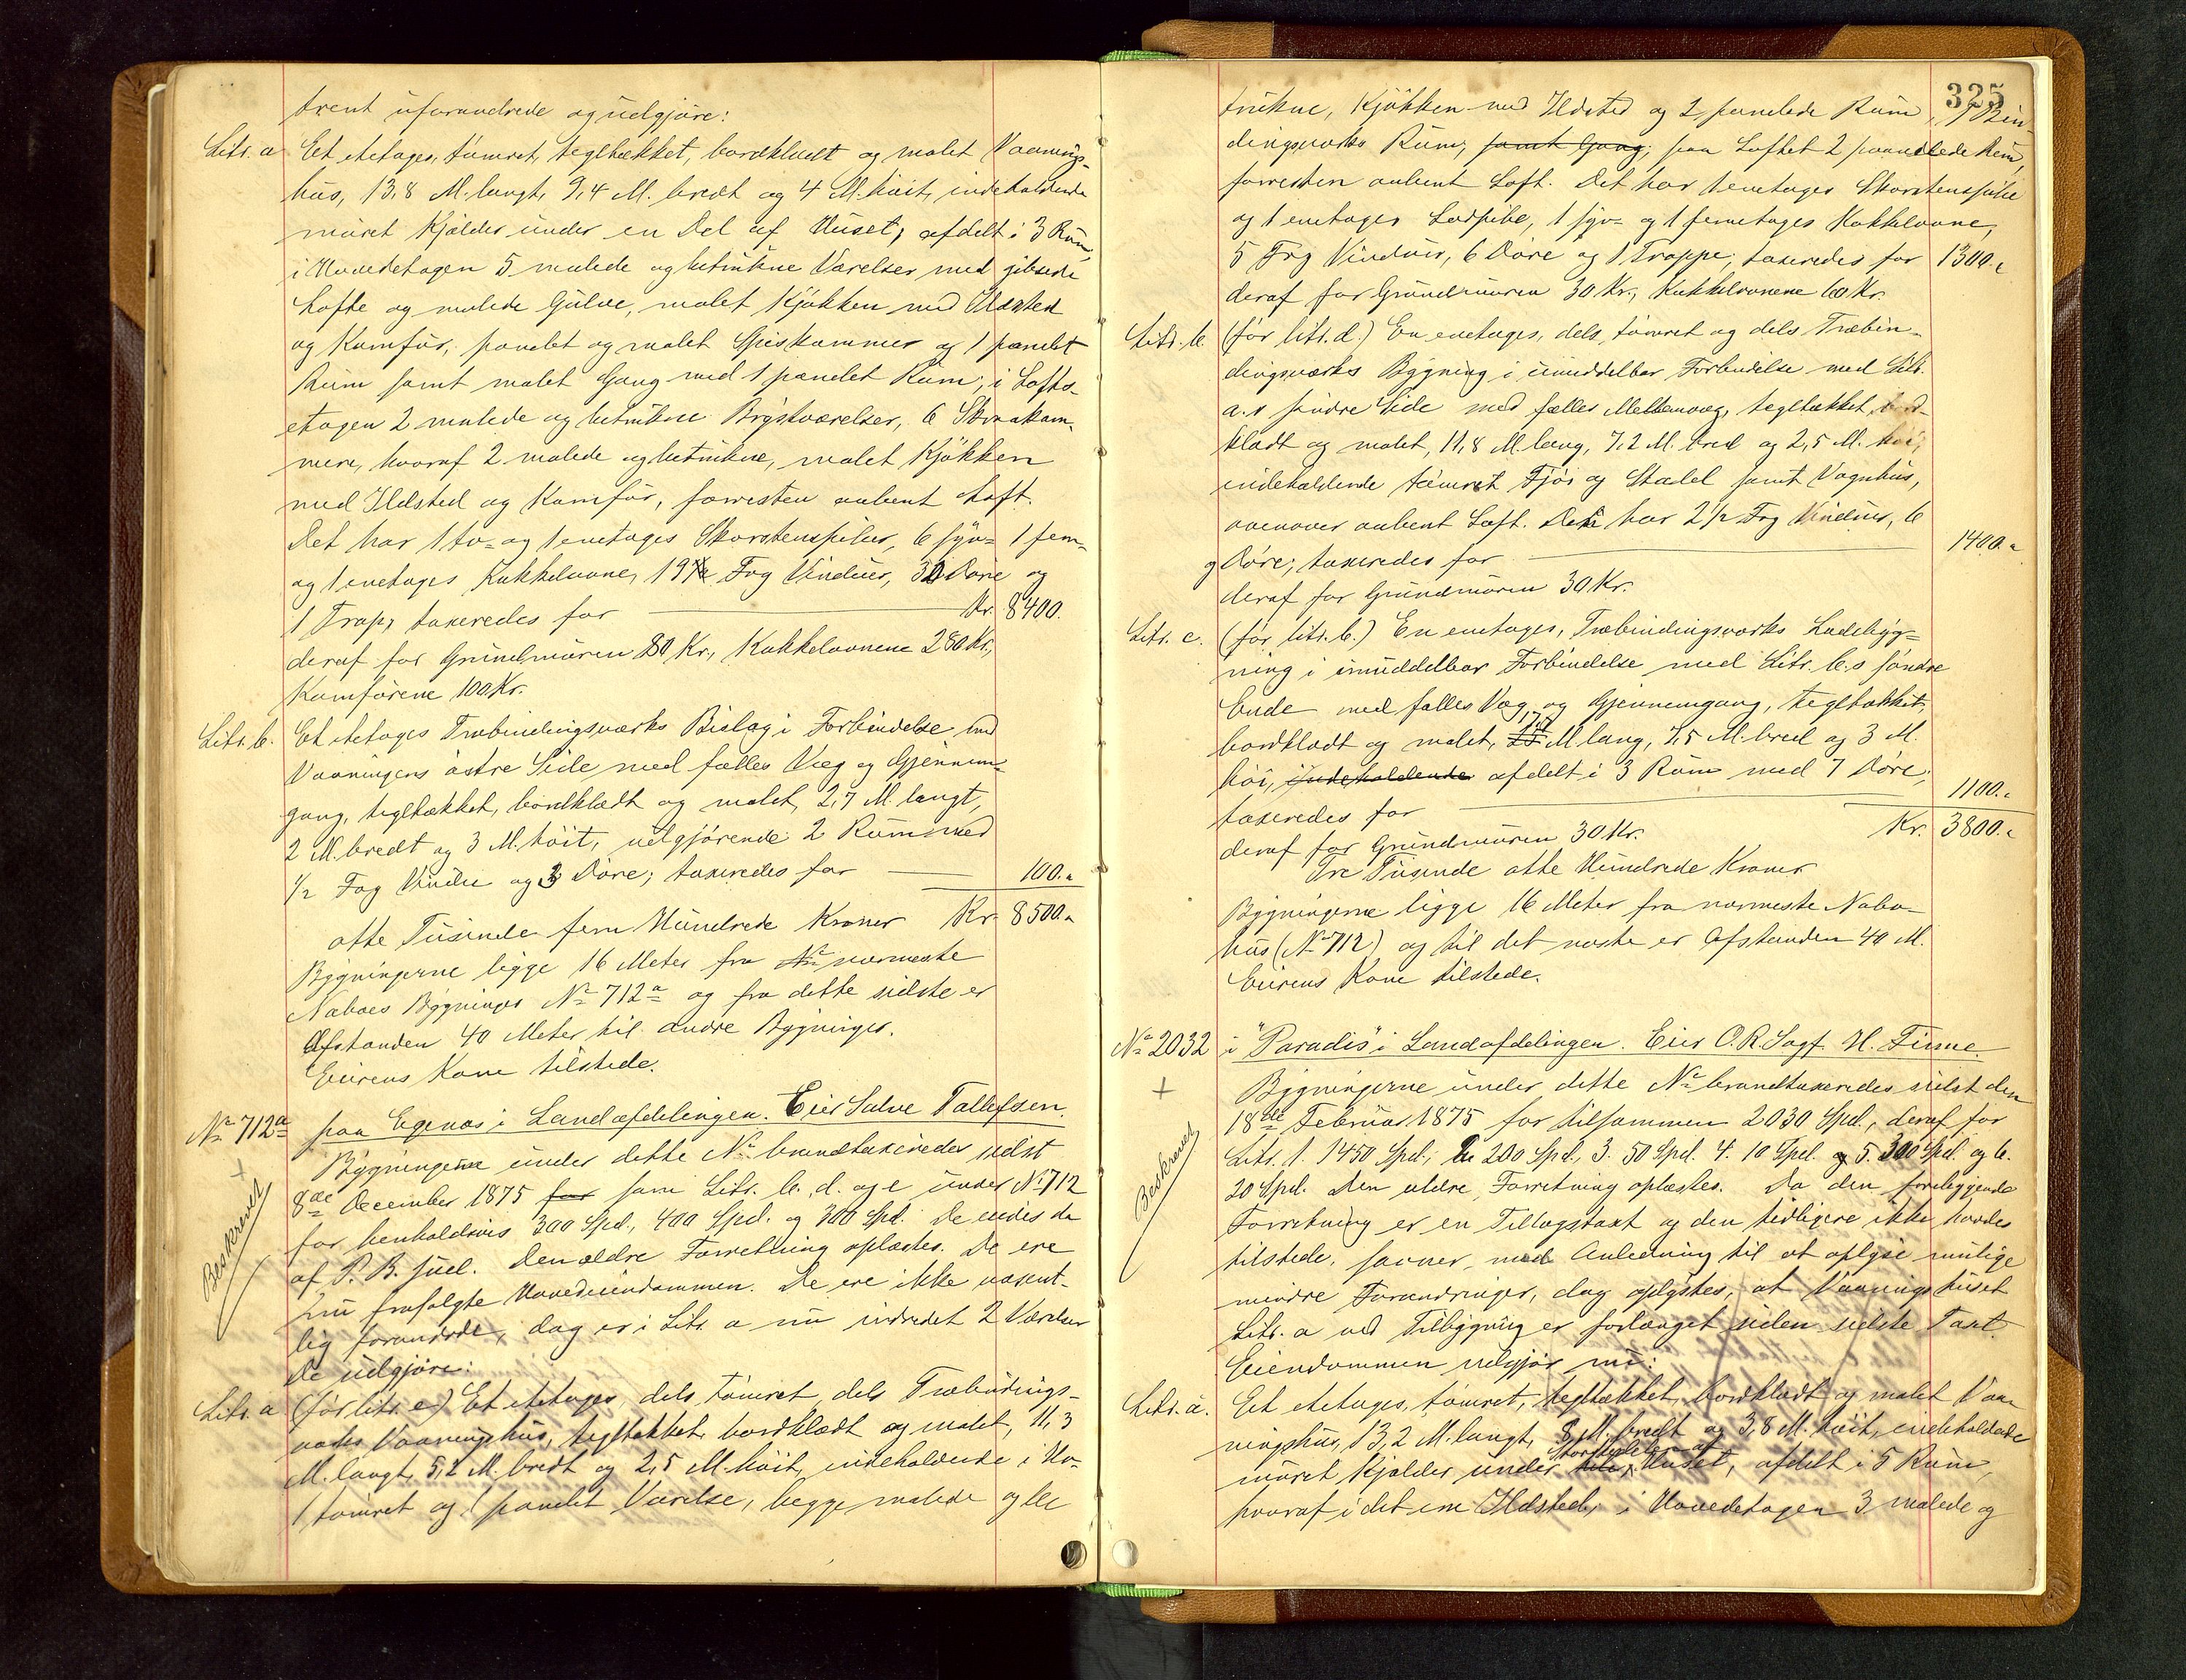 trent uforandrede og udgjøre:
Litr. a Et etetages, tømret, tegltækket, bordklædt og malet Vaanings-
hus, 13,8 M. langt, 9,4 M. bredt og 4 M. høit, indeholdende
muret Kjælder under en Del af Huset, afdelt i 3 Rum,
i Hovedetagen 5 malede og betrukne Værelser med gibsede
Lofte og malede Gulve, malet Kjøkken med Ildsted
og Komfur, panelet og malet Spiskammer og 1 panelet
Rum samt malet Gang med 1 panelet Rum; i Lofts-
etagen 2 malede og betrukne Brystværelser, 6 Skraakam-
mere, hvoraf 2 malede og betrukne, malet Kjøkken
med Ildsted og Komfur, forresten aabent Loft.
Det har 1 to- og 1 enetages Skorstenspiber, 6 syv- 1 fem-
og 1 enetages Kakkelovne, 19½ Fag Vinduer, 30 Døre og
1 Trap; taxeredes for Kr. 8400.
deraf for Grundmuren 80 Kr, Kakkelovnene 280 Kr,
Komfurene 100 Kr.
Litr. b. Et etetages Træbindingsværks Bislag i Forbindelse med
Vaaningens østre Side med fælles Væg og Gjennem-
gang, tegltækket, bordklædt og malet, 2,7 M. langt,
2 M. bredt og 3 M. høit, udgjørende 2 Rum med
½ Fag Vindu og 3 Døre; taxeredes for 100.
otte Tusinde fem Hundrede Kroner Kr 8500.
Bygningerne ligge 16 Meter fra nærmeste
Naboes Bygninger No 712a og fra dette sidste er
Afstanden 40 Meter til andre Bygninger.
Eierens Kone tilstede.
No 712a paa Egenæs i Landafdelingen. Eier Salve Tallefsen.
Bygningerne under dette No brandtaxeredes sidst
8de December 1875 for som Litr. b, d. og e under No 712
for henholdsvis 300 Spd., 400 Spd. og 300 Spd. De eiedes da
af P. B. Juel. Den ældre Forretning oplæstes. De ere
nu frasolgte Hovedeiendommen. De ere ikke væsent-
lig forandrede, dog er i Litr. a nu indredet 2 Værelser
De udgjøre:
Beskrevet
Litr. a (før litr. e) Et etetages, dels tømret, dels Træbindings-
værks Vaaningshus, tegltækket, bordklædt og malet, 11,3
M. langt, 5,2 M. bredt og 2,5 M. høit, indeholdende i Ho-
1 tømret og 1 panelet Værelse, begge malede og be
325
trukne, Kjøkken med Ildsted og 2 panelede Rum, 1 Bin-
dingsværks Rum, samt Gang; paa Loftet 2 panelede Rum,
forresten aabent Loft. Det har 1 enetages Skorstenspibe
og 1 enetages Lodpibe, 1 syv- og 1 femetages Kakkelovne,
5 Fag Vinduer, 6 Døre og 1 Trappe; taxeredes for 1300.
deraf for Grundmuren 30 Kr., Kakkelovnene 60 Kr.
Litr. b (før litr. d.) En enetages, dels tømret og dels Træbin-
dingsværks Bygning i umiddelbar Forbindelse med Litr.
a.s søndre Side med fælles Mellemvæg, tegltækket, bord-
klædt og malet, 11,8 M. lang, 7,2 M. bred og 2,5 M. høi,
indeholdende tømret Fjøs og Stadel samt Vognhus,
ovenover aabent Loft. Den har 2½ Fag Vinduer, 6
Døre; taxeredes for 1400.
deraf for Grundmuren 30 Kr.
Litr. c. (før litr. b.) En enetages, Træbindingsværks Ladebyg-
ning i umiddelbar Forbindelse med Litr. b.s søndre
Ende med fælles Væg og Gjennemgang, tegltækket,
bordklædt og malet, M. lang, 7,5 M. bred og 3 M.
høi, indeholdende afdelt i 3 Rum med 7 Døre;
taxeredes for 1100.
deraf for Grundmuren 30 Kr. Kr. 3800.
Tre Tusinde otte Hundrede Kroner
Bygningerne ligge 16 Meter fra nærmeste Nabo-
hus (No 712) og til det næste er Afstanden 40 M.
Eierens Kone tilstede.
No 2032 i "Paradis" i Landafdelingen. Eier O.R. Sagf. H. Finne.
Bygningerne under dette No brandtaxeredes sidst den
18de Februar 1875 for tilsammen 2030 Spd., deraf for
Litr. 1. 1450 Spd., 2. 200 Spd., 3. 50 Spd. 4. 10 Spd. 5. 300 Spd. og 6.
20 Spd. Den ældre Forretning oplæstes. Da den foreliggende
Forretning er en Tillægstaxt og den tidligere ikke havdes
tilstede, savner, med Anledning til at oplyse mulige
mindre Forandringer, dog oplystes, at Vaaningshuset
Litr. a ved Tilbygning er forlænget siden sidste Taxt.
Eiendommen udgjør nu:
Beskrevet
Litr. a. Et etetages, tømret, tegltækket, bordklædt og malet Vaa-
ningshus, 13,2 M. langt, 8 M. bredt og 3,8 M. høit, indeholdende
muret Kjælder under Størstedelen af Huset, afdelt i 5 Rum,
hvoraf i det ene Ildsted, i Hovedetagen 3 malede og